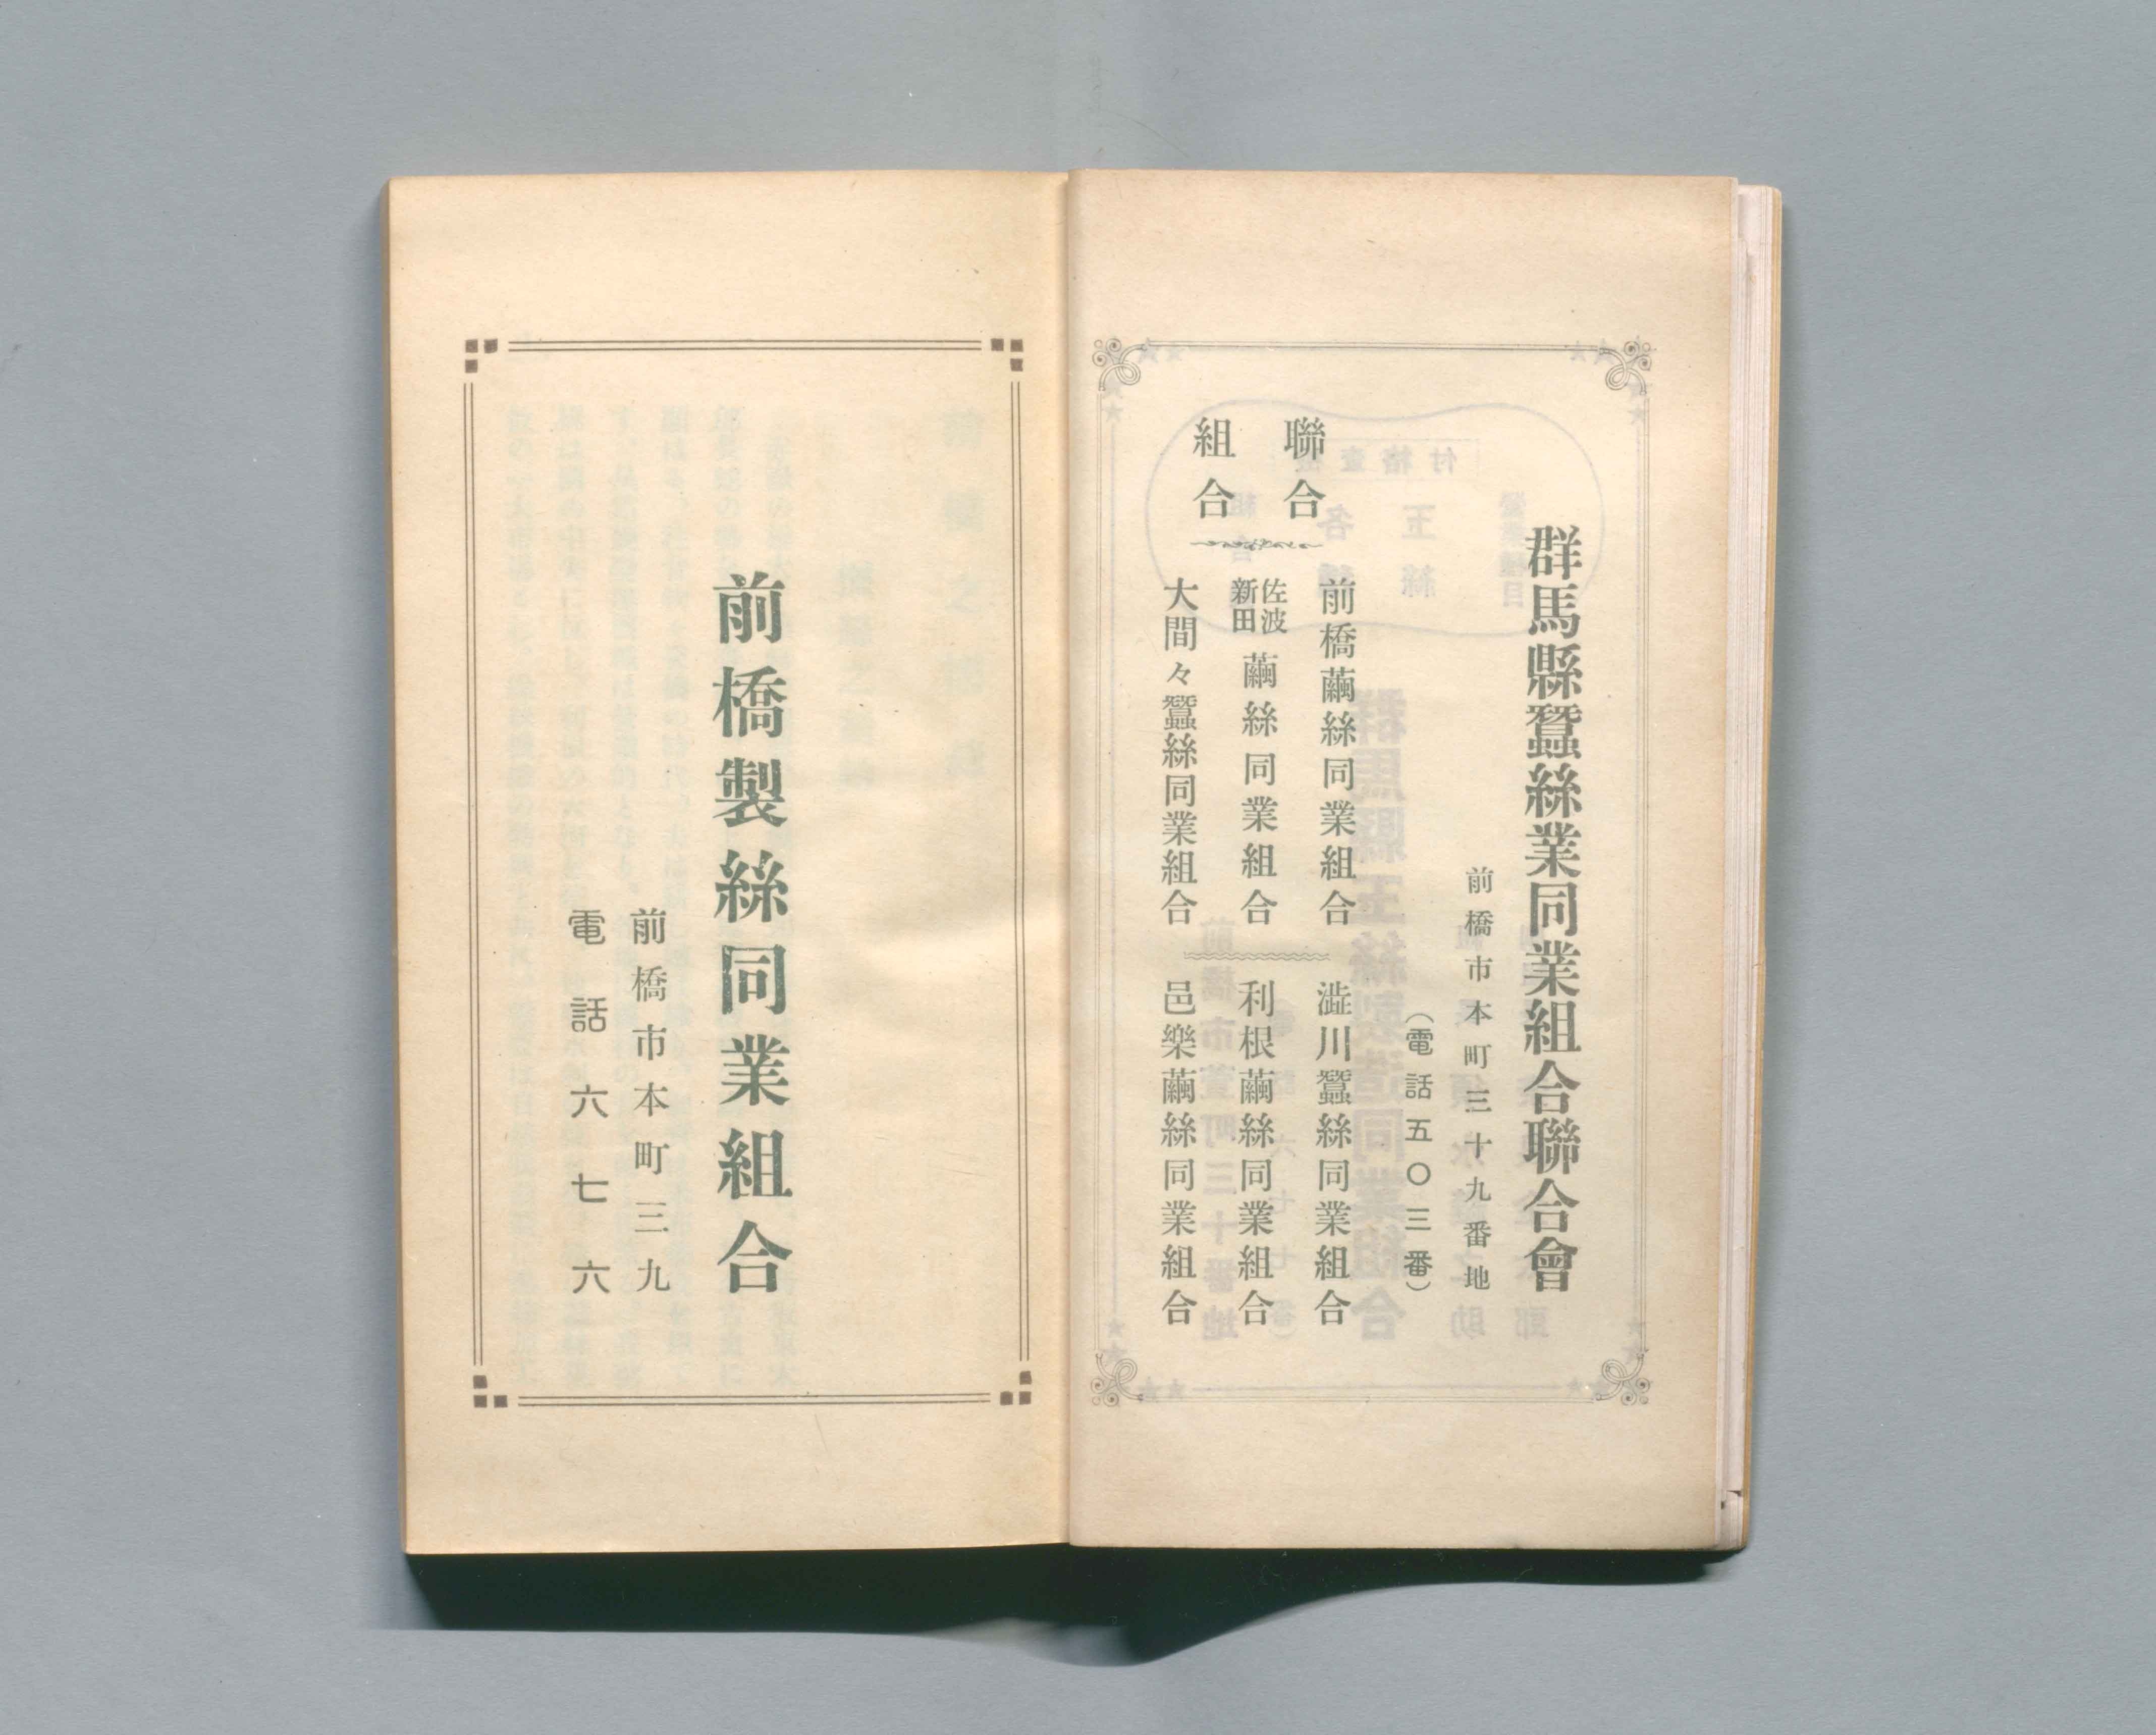 群馬縣蠶絲業同業組合聯合會
前橋市本町三十九番地
（電話五〇三番）
聯合
組合
前橋繭絲同業組合
佐波
新田
繭絲同業組合
大間々蠶絲同業組合
澁川蠶絲同業組合
利根繭絲同業組合
邑樂繭絲同業組合
前橋製絲同業組合
前橋市本町三九
電話六七六